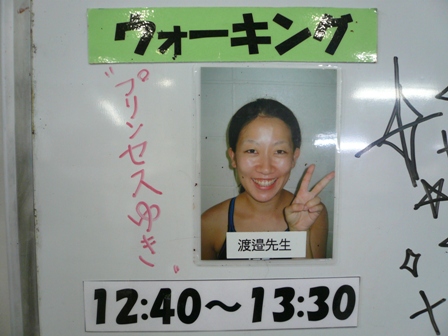 ウォーキング
"プリンセスゆき"
渡邉先生
12:40～13:30